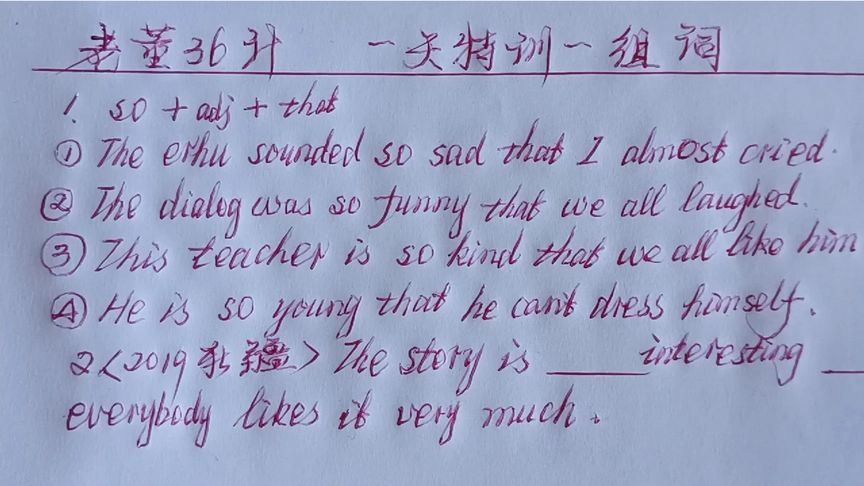 老董36计 一天特训一组词
1. so + adj + that
① The erhu sounded so sad that I almost cried.
② The dialog was so funny that we all laughed.
③ This teacher is so kind that we all like him
④ He is so young that he can't dress himself.
2<2019新疆> The story is ____ interesting __
everybody likes it very much.